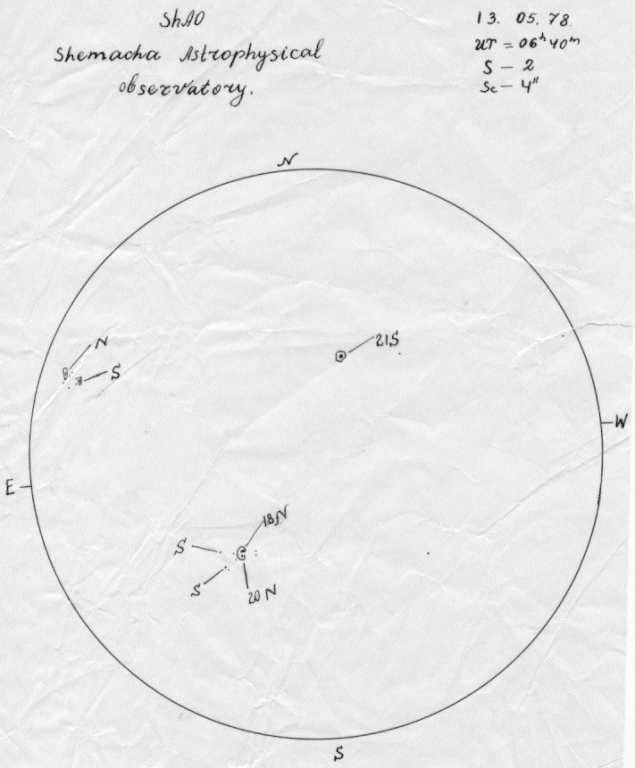 ShAO
Shemacha Astrophysical
observatory.
13. 05. 78.
UT = 06ʰ 40ᵐ
S – 2
Sc – 4"
N
21S
N
S
W
E
18N
S
S
20N
S